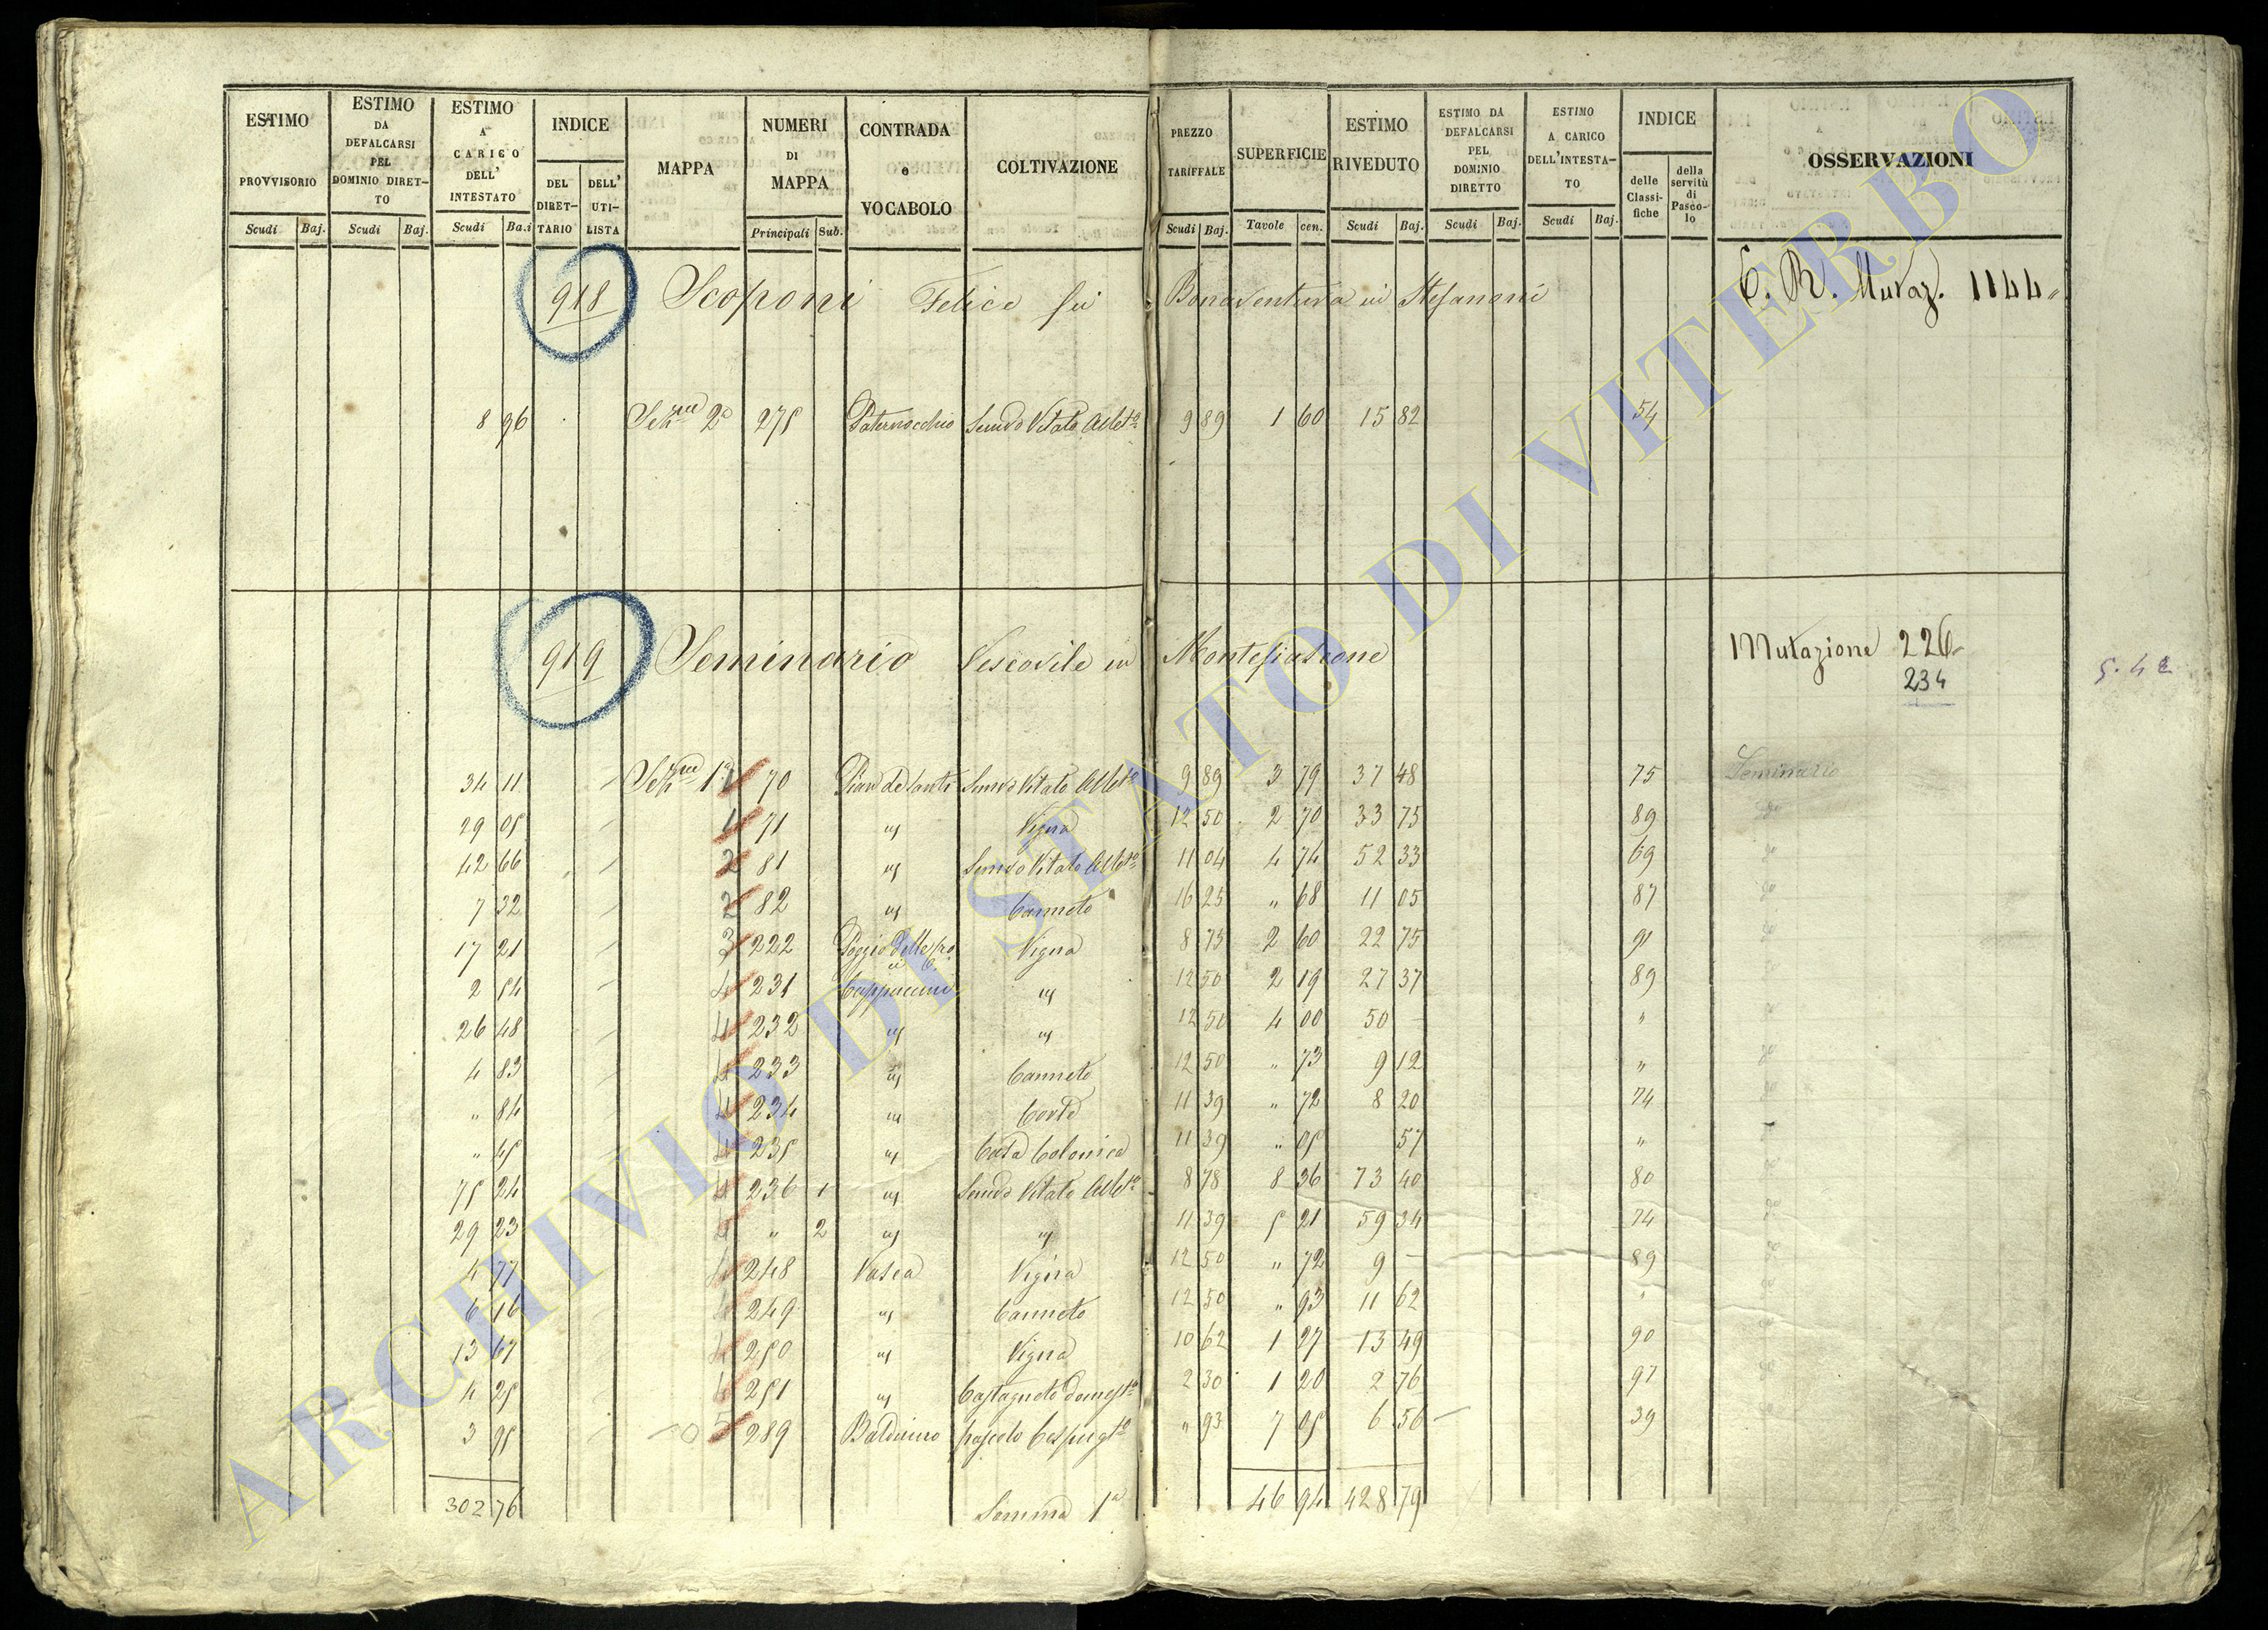 ESTIMO PROVVISORIO Scudi Baj.
ESTIMO DA DEFALCARSI PEL DOMINIO DIRET-TO Scudi Baj.
ESTIMO A CARICO DELL' INTESTATO Scudi Ba.i
INDICE DEL DIRET-TARIO DELL' UTI-LISTA
MAPPA
NUMERI DI MAPPA Principali Sub.
CONTRADA e VOCABOLO
COLTIVAZIONE
PREZZO TARIFFALE Scudi Baj.
SUPERFICIE Tavole cen.
ESTIMO RIVEDUTO Scudi Baj.
ESTIMO DA DEFALCARSI PEL DOMINIO DIRETTO Scudi Baj.
ESTIMO A CARICO DELL'INTESTA-TO Scudi Baj.
INDICE delle Classi-fiche della servitù di Pasco-lo
OSSERVAZIONI
918 Scoponi Felice fu Bonaventura in Stefanoni 1144
8 96 2a 275 Paternocchio Semvo Vitato Allto 9 89 1 60 15 82 54
919 Seminario Vescovile in Montefiascone Mutazione 226
234
34 11 1a 1 70 Semvo Vitato Allto 9 89 3 79 37 48 75 Seminario
29 05 1 71 " Vigna 12 50 2 70 33 75 89
42 66 2 81 " Semvo Vitato Allto 11 04 4 74 52 33 69
7 32 2 82 " Canneto 16 25 " 68 11 05 87
17 21 3 222 Poggio Vigna 8 75 2 60 22 75 91
2 54 4 231 Cappuccini " 12 50 2 19 27 37 89
26 48 4 232 " " 12 50 4 00 50 – "
4 83 4 233 " Canneto 12 50 " 73 9 12 "
" 84 4 234 " Corte 11 39 " 72 8 20 74
" 45 4 235 " Casa Colonica 11 39 " 05 57 "
75 24 4 236 1 " Semvo Vitato Allto 8 78 8 36 73 40 80
29 23 4 " 2 " " 11 39 5 21 59 34 74
4 77 4 248 Vasca Vigna 12 50 " 72 9 – 89
6 16 4 249 " Canneto 12 50 " 93 11 62 "
13 67 4 250 " Vigna 10 62 1 27 13 49 90
4 25 4 251 " Castagneto domesto 2 30 1 20 2 76 97
3 95 5 289 pascolo Cespugto " 93 7 05 6 56 39
302 76 Somma 1a 46 94 428 79
ARCHIVIO DI STATO DI VITERBO